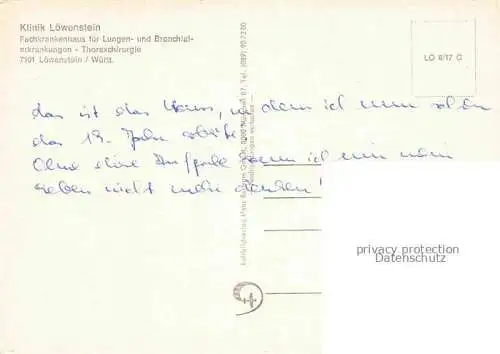 Klinik Löwenstein
Fachkrankenhaus für Lungen- und Bronchial-
erkrankungen - Thoraxchirurgie
7101 Löwenstein / Württ.
LO 6/17 C
das ist das Haus, in dem ich nun schon
das 19. Jahr arbeite.
Ohne diese Aufgabe kann ich mir mein
Leben nicht mehr denken!
privacy protection
Datenschutz